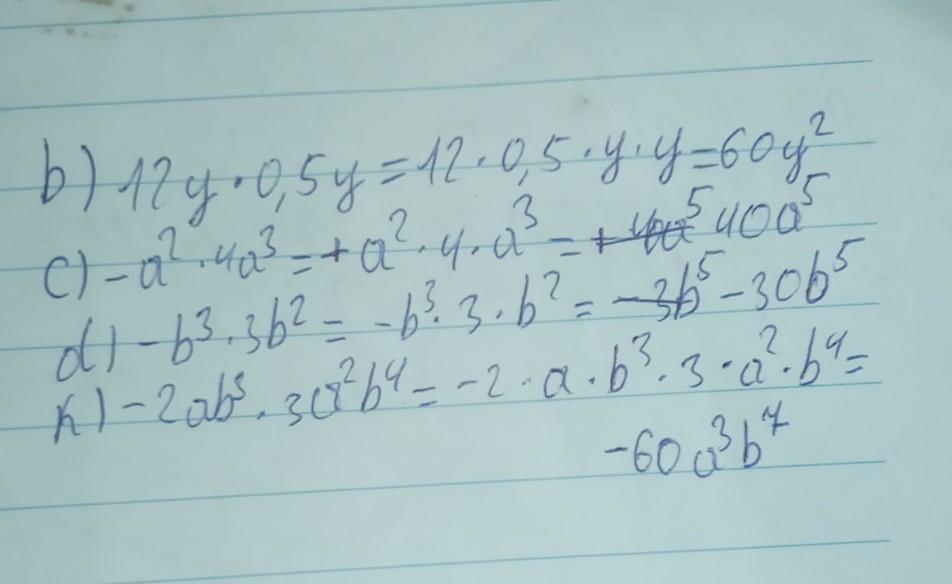 b) 12y·0,5y=12·0,5·y·y=60y²
c) -a²·4a³=+a²·4·a³=+4a⁵ 40a⁵
d) -b³·3b²=-b³·3·b²=-3b⁵-30b⁵
k) -2ab³·3a²b⁴=-2·a·b³·3·a²·b⁴=
-60a³b⁷